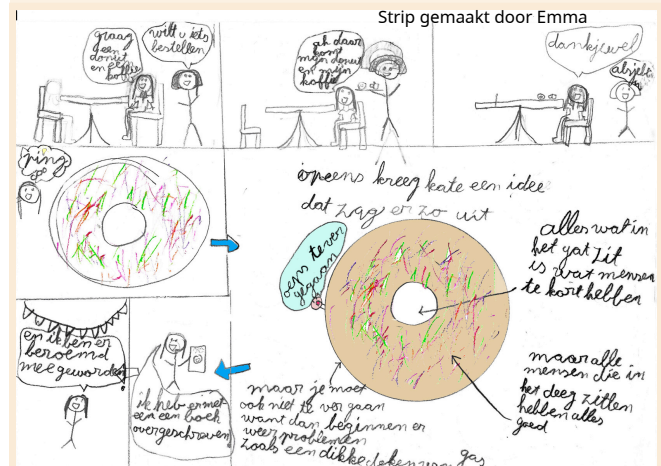 Strip gemaakt door Emma
graag
een
donut
en een
koffie
wilt u iets
bestellen
ah daar
komt
mijn donut
en mijn
koffie
dankjewel
alsjebl
ping
opeens kreeg kate een idee
dat zag er zo uit
oeps te ver
gegaan
alles wat in
het gat zit
is wat mensen
te kort hebben
maar alle
mensen die in
het deeg zitten
hebben alles
goed
maar je moet
ook niet te ver gaan
want dan beginnen er
weer problemen
zoals een dikke deken
gas
ik heb er met
een een boek
over geschreven
en ik ben er
beroemd
mee geworden